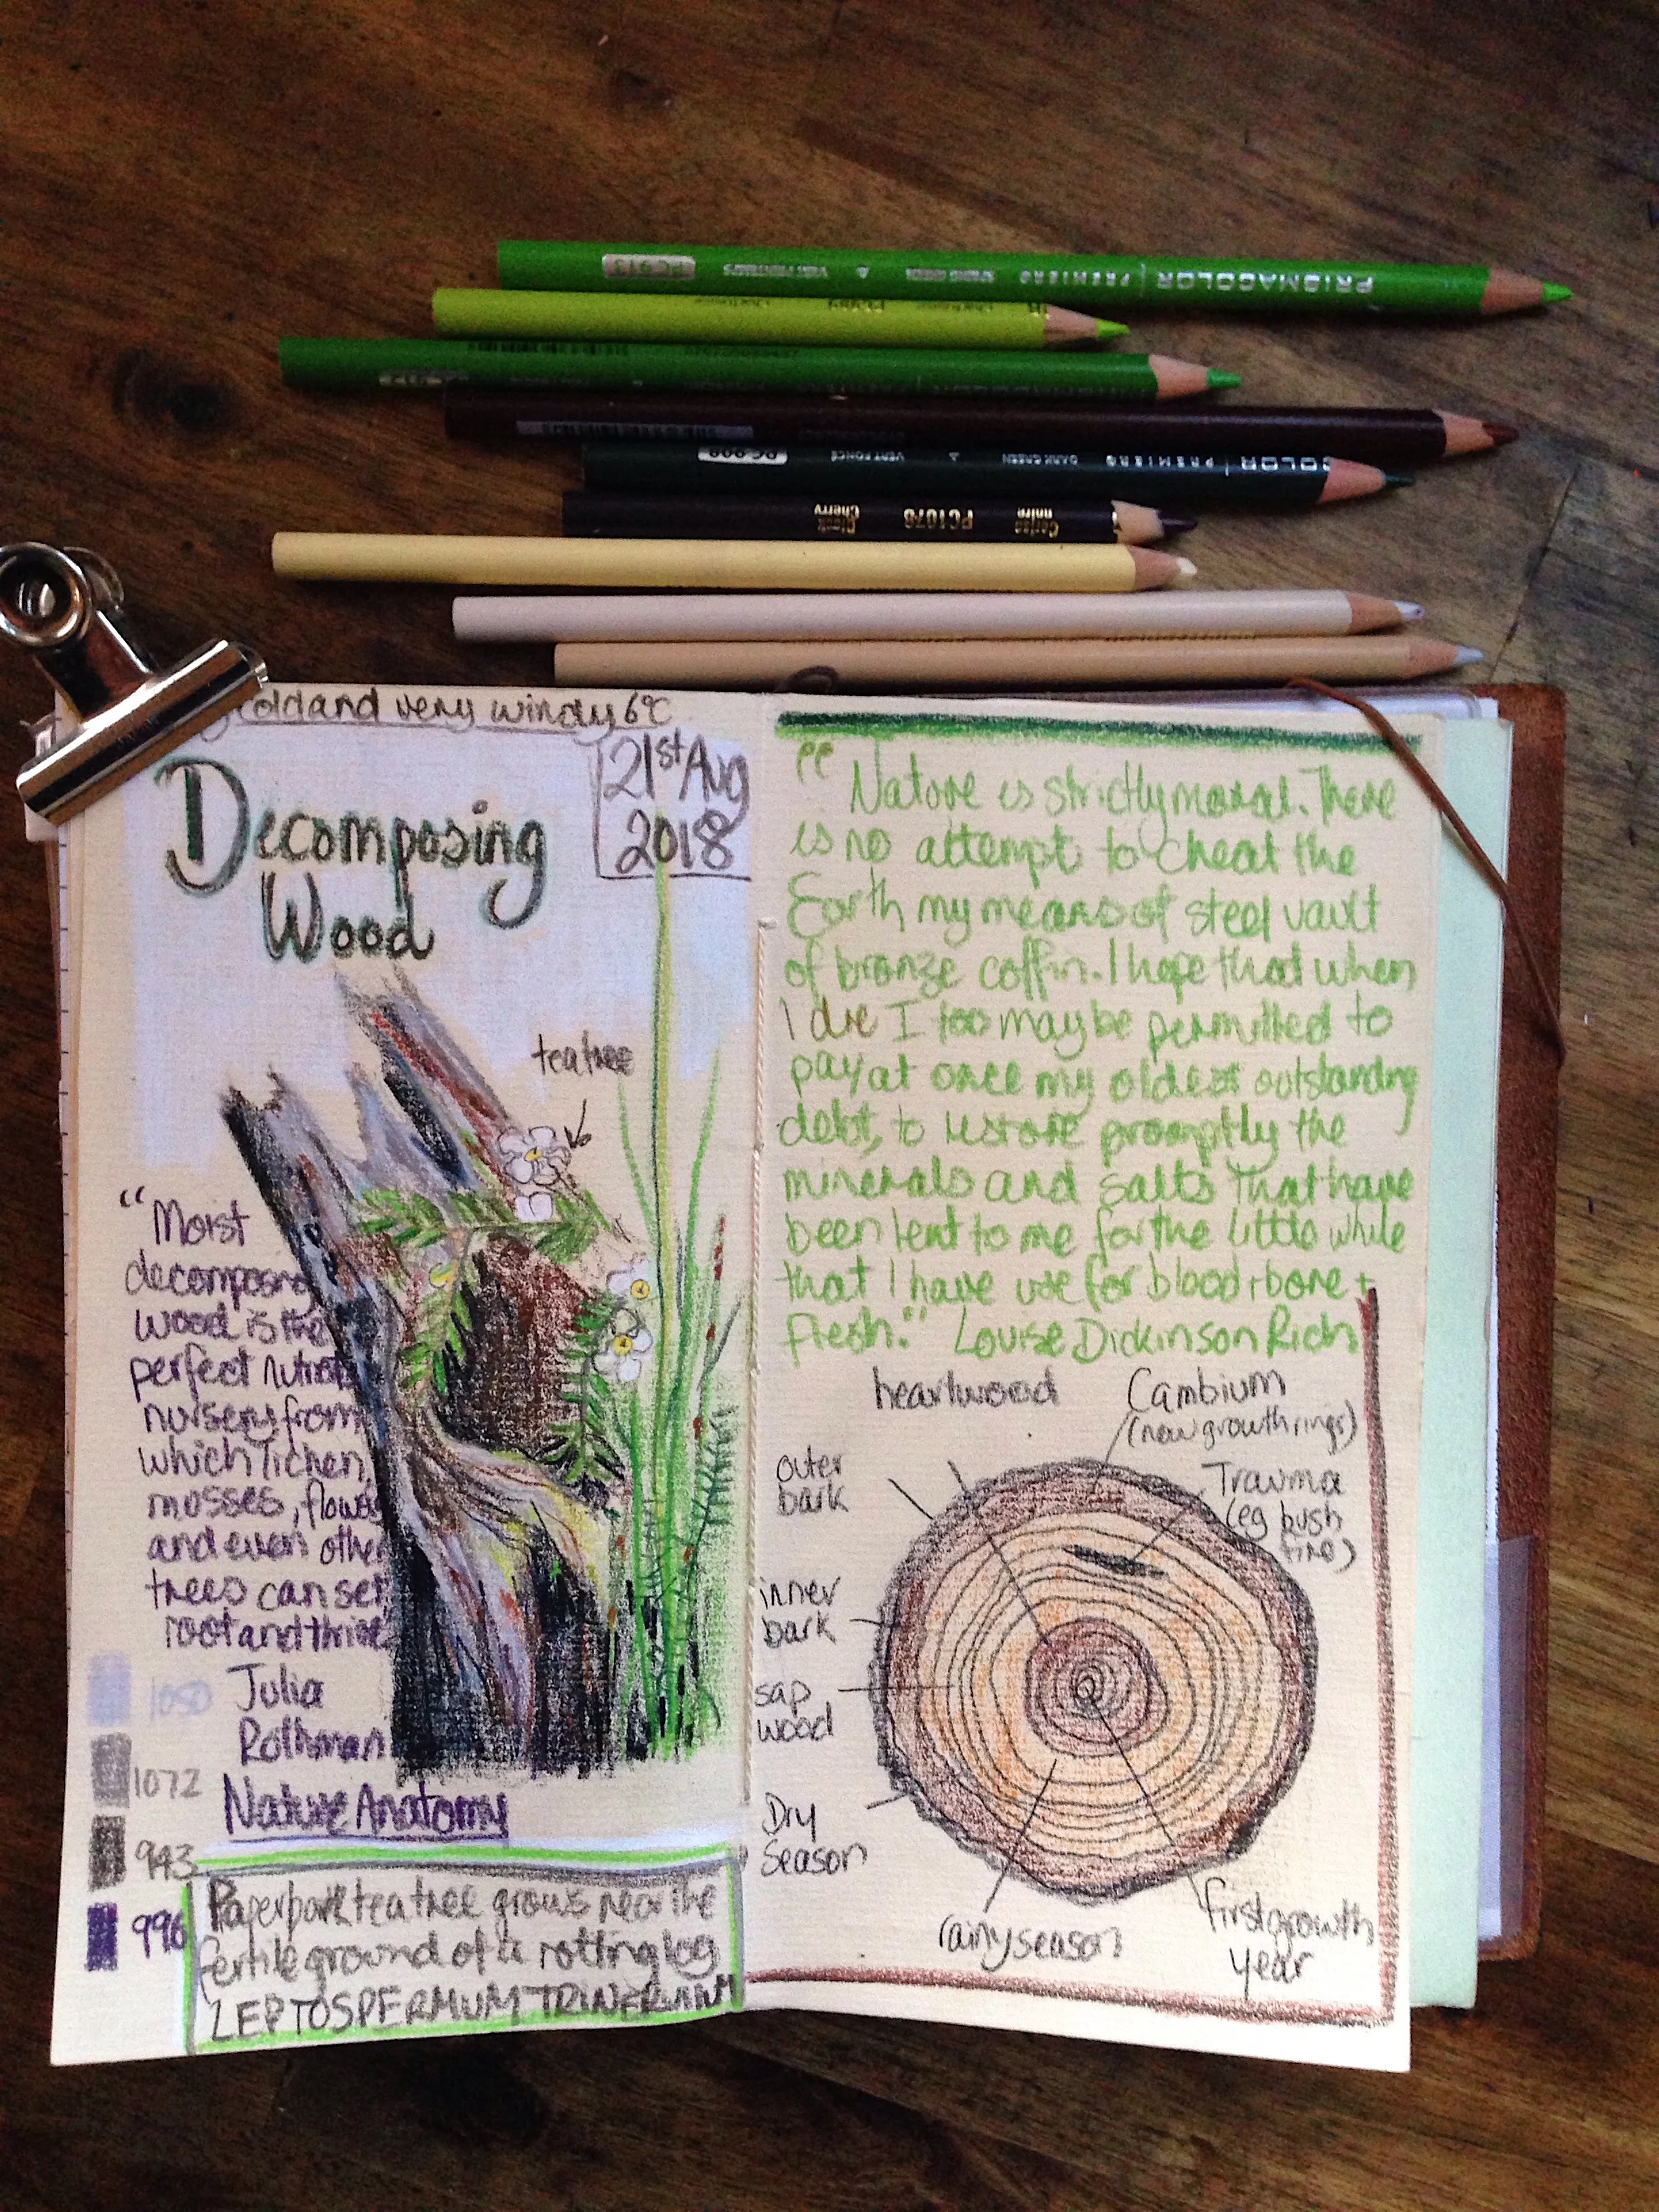 PRISMACOLOR PREMIER SPRING GREEN VERT PRINTEMPS PC 913
Chartreuse
COLOR PREMIER DARK GREEN VERT FONCÉ PC 908
Black Cherry PC1078 Cerise noire
cold and very windy 6°C
21st Aug
2018
Decomposing
Wood
tea tree
"Moist
decomposing
wood is the
perfect
nursery from
which lichen,
mosses,
and even other
trees can set
root and thrive"
Julia
Rothman
Nature Anatomy
1050
1072
943
996
Paperbark tea tree grows near the
fertile ground of a rotting log
LEPTOSPERMUM TRINERVIUM
"Nature is strictly moral. There
is no attempt to cheat the
Earth my means of steel vault
of bronze coffin. I hope that when
I die I too may be permitted to
pay at once my oldest outstanding
debt, to restore promptly the
minerals and salts that have
been lent to me for the little while
that I have use for blood + bone +
flesh." Louise Dickinson Rich
heartwood
Cambium
(new growth rings)
outer
bark
Trauma
(eg bush
fire)
inner
bark
sap
wood
Dry
Season
rainy season
first growth
year